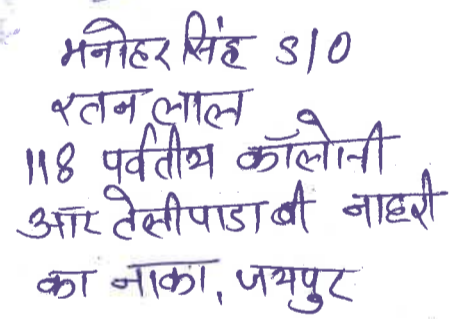 मनोहर सिंह S/O
रतन लाल
118 पर्वतीय कॉलोनी
आर तेलीपाडा बी नाहरी
का नाका, जयपुर